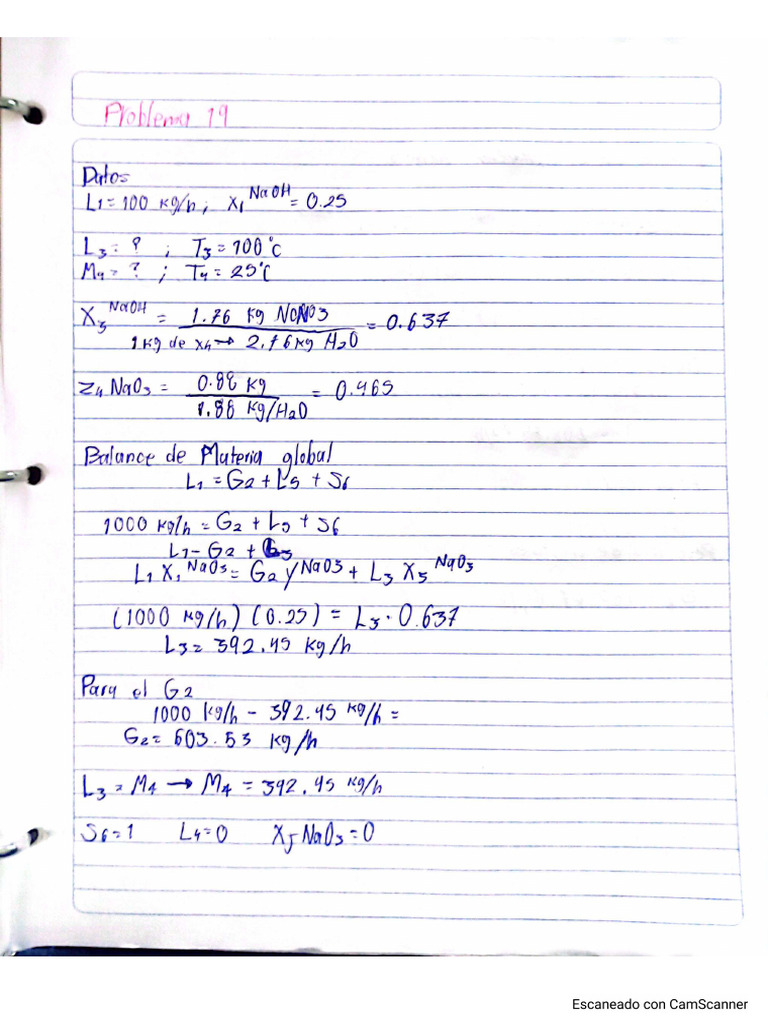 Problema 19
Datos
L1 = 100 kg/h ; X1 NaOH = 0.25
L3 = ? ; T3 = 100°C
M4 = ? ; T4 = 25°C
X3 NaOH = 1.76 kg NaNO3 = 0.637
1 kg de x4 → 2.76 kg H2O
Z4 NaO3 = 0.88 kg = 0.465
1.88 kg/H2O
Balance de Materia global
L1 = G2 + L5 + S6
1000 kg/h = G2 + L5 + S6
L1 - G2 + L3
L1 X1 NaO3 = G2 Y NaO3 + L3 X3 NaO3
(1000 kg/h) (0.25) = L3 · 0.637
L3 = 392.45 kg/h
Para el G2
1000 kg/h - 392.45 kg/h =
G2 = 603.53 kg/h
L3 = M4 → M4 = 392.45 kg/h
S6 = 1 L4 = 0 X5 NaO3 = 0
Escaneado con CamScanner